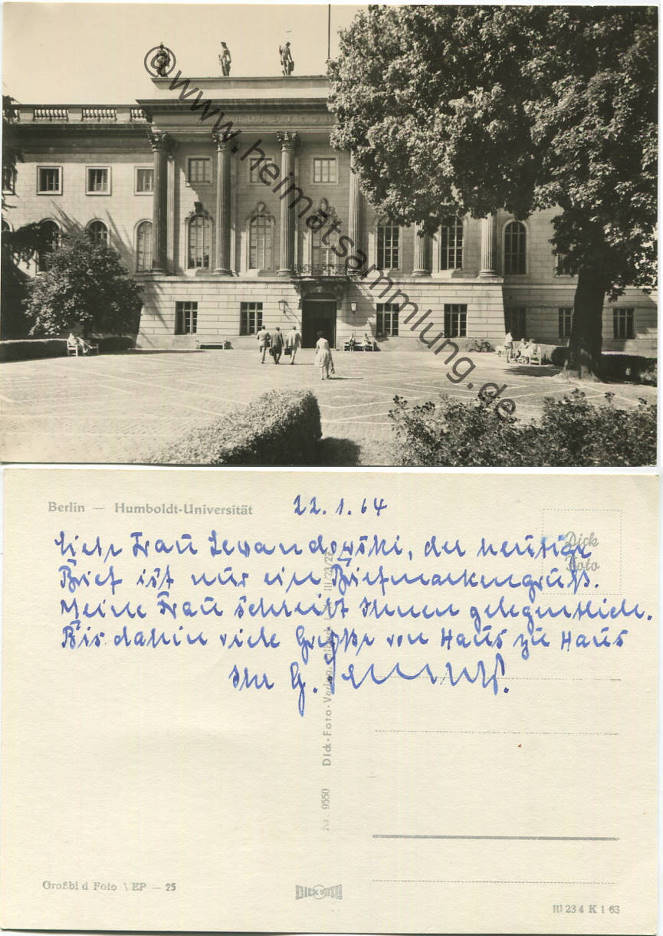 www.heimatsammlung.de
Berlin — Humboldt-Universität
22.1.64
Dick
Foto
Liebe Frau Lewandowski, der heutige
Brief ist nur ein Briefmarkengruß.
Meine Frau schreibt Ihnen gelegentlich.
Bis dahin viele Grüße von Haus zu Haus
Ihr G.
Nr. 9550 Dick-Foto-Verlag
Großbild Foto VEP — 25
DICK FOTO
III 23 4 K 1 63